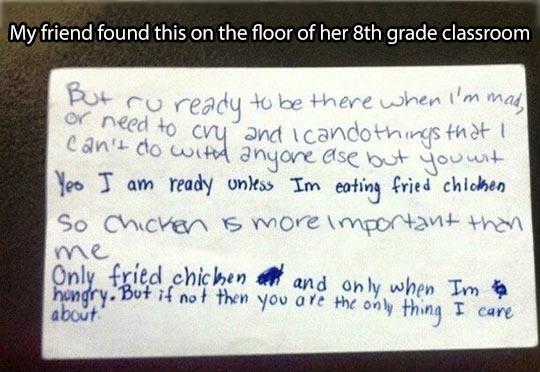 My friend found this on the floor of her 8th grade classroom
But r u ready to be there when I'm mad,
or need to cry and i can do things that I
can't do with anyone else but you wit
Yes I am ready unless Im eating fried chicken
So Chicken is more important than
me
Only fried chicken and only when Im
hungry. But if not then you are the only thing I care
about.